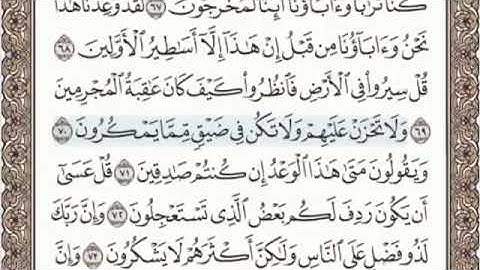 كُنَّا تُرَٰبًا وَءَابَآؤُنَآ أَئِنَّا لَمُخْرَجُونَ ٦٧ لَقَدْ وُعِدْنَا هَٰذَا
نَحْنُ وَءَابَآؤُنَا مِن قَبْلُ إِنْ هَٰذَآ إِلَّآ أَسَٰطِيرُ ٱلْأَوَّلِينَ ٦٨
قُلْ سِيرُوا۟ فِى ٱلْأَرْضِ فَٱنظُرُوا۟ كَيْفَ كَانَ عَٰقِبَةُ ٱلْمُجْرِمِينَ
٦٩ وَلَا تَحْزَنْ عَلَيْهِمْ وَلَا تَكُن فِى ضَيْقٍ مِّمَّا يَمْكُرُونَ ٧٠
وَيَقُولُونَ مَتَىٰ هَٰذَا ٱلْوَعْدُ إِن كُنتُمْ صَٰدِقِينَ ٧١ قُلْ عَسَىٰٓ
أَن يَكُونَ رَدِفَ لَكُم بَعْضُ ٱلَّذِى تَسْتَعْجِلُونَ ٧٢ وَإِنَّ رَبَّكَ
لَذُو فَضْلٍ عَلَى ٱلنَّاسِ وَلَٰكِنَّ أَكْثَرَهُمْ لَا يَشْكُرُونَ ٧٣ وَإِنَّ